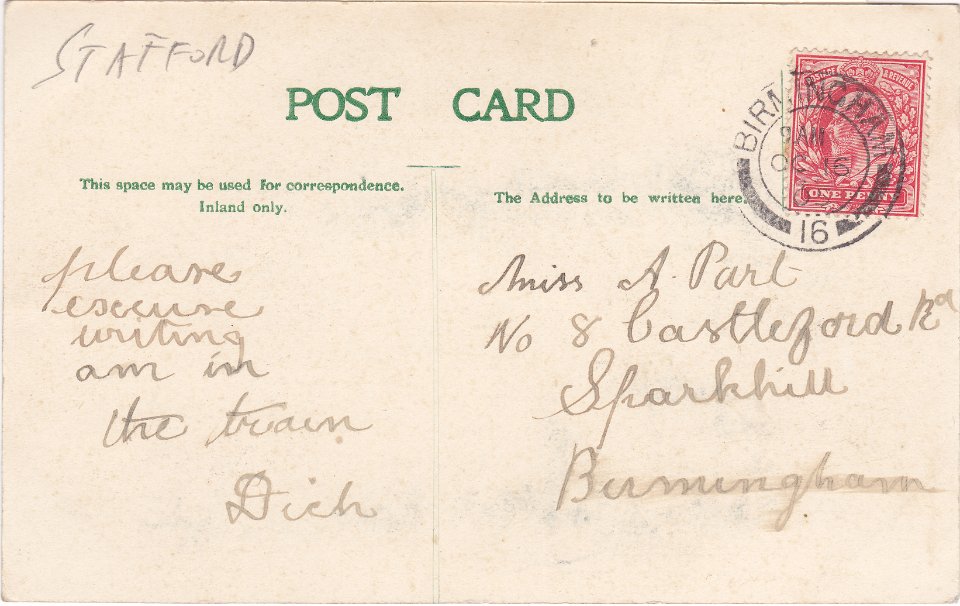 STAFFORD
POST CARD
This space may be used for correspondence.
Inland only.
The Address to be written here.
BIRMINGHAM
AM
OC 16
16
POSTAGE & REVENUE
ONE PENNY
please
excuse
writing
am in
the train
Dick
Miss A. Part
No 8 Castleford Rd
Sparkhill
Birmingham